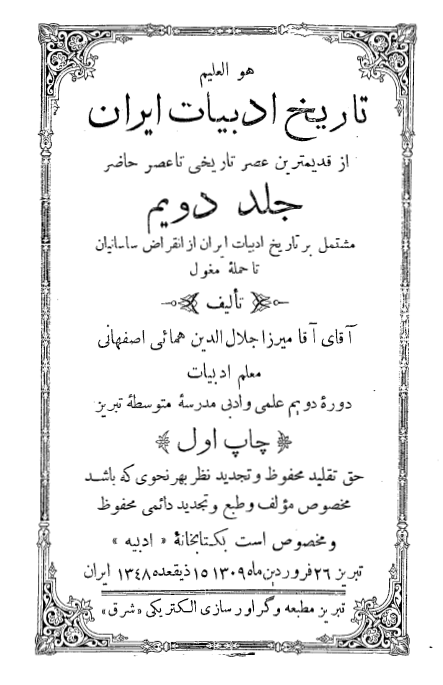 هو العلیم
تاریخ ادبیات ایران
از قدیمترین عصر تاریخی تا عصر حاضر
جلد دویم
مشتمل بر تاریخ ادبیات ایران از انقراض ساسانیان
تا حملهٔ مغول
تألیف
آقای آقا میرزا جلال الدین همائی اصفهانی
معلم ادبیات
دورهٔ دویم علمی و ادبی مدرسهٔ متوسطهٔ تبریز
چاپ اول
حق تقلید محفوظ و تجدید نظر بهر نحوی که باشد
مخصوص مؤلف و طبع و تجدید دائمی محفوظ
و مخصوص است بکتابخانهٔ «ادبیه»
تبریز ۲۶ فروردین ماه ۱۳۰۹ ۱۵ ذیقعده ۱۳۴۸ ایران
تبریز مطبعه و گراور سازی الکتریکی «شرق»